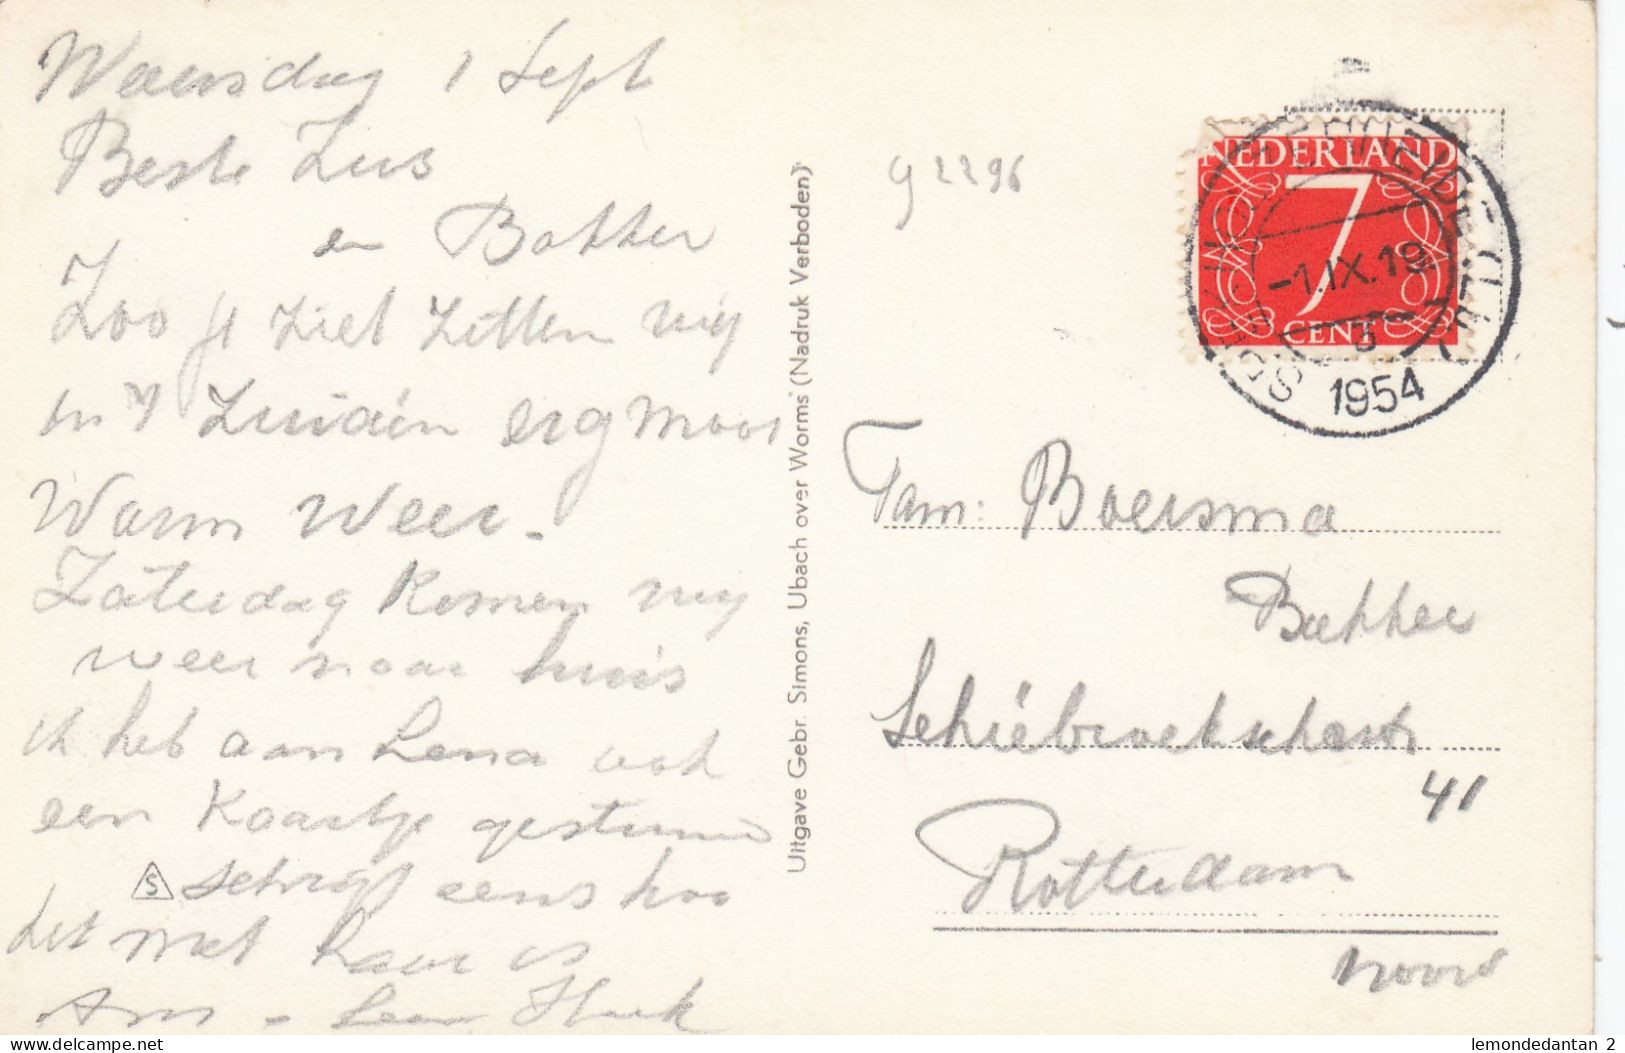 Woensdag 1 Sept
Beste Zus
en Bakker
Zoo je ziet zitten wij
in 't Zuiden erg mooi
Warm weer -
Zaterdag komen wij
weer naar huis
ik heb aan Lena ook
een kaartje gestuurd
S schrijf eens hoe
het met haar is
Ans - Leen Henk
Uitgave Gebr. Simons, Ubach over Worms (Nadruk Verboden)
g 2296
NEDERLAND
7
CENT
-1.IX.19
3
1954
Fam: Boersma
Bakker
Schiebroekschestr
41
Rotterdam
Noord
delcampe.net
lemondedantan 2